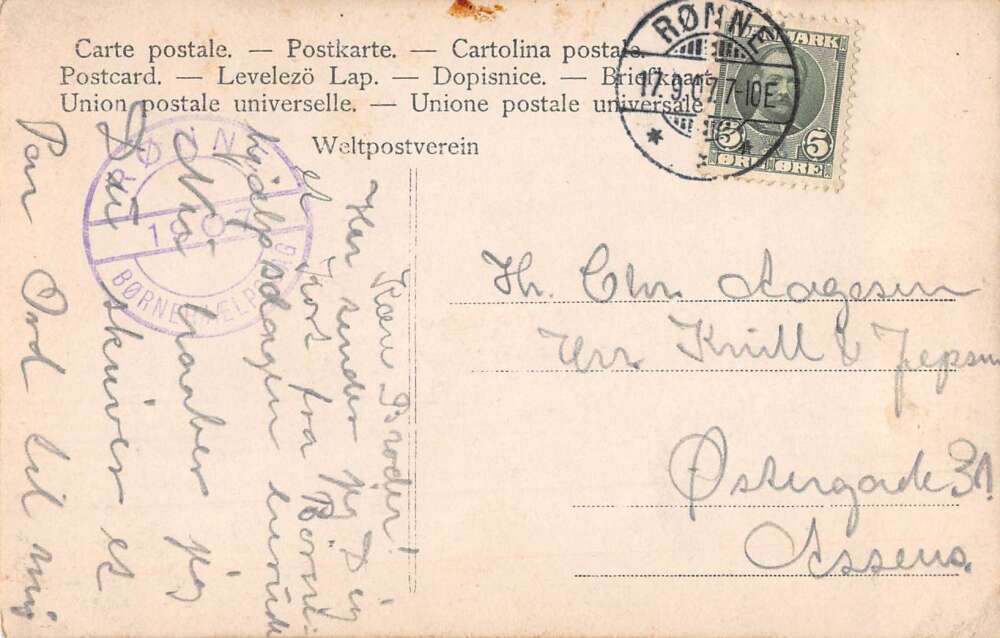 Carte postale. — Postkarte. — Cartolina postale.
Postcard. — Levelezö Lap. — Dopisnice. — Briefkaart
Union postale universelle. — Unione postale universale
Weltpostverein
RØNNE
17.9.07.7-10E
DANMARK
5 5
ØRE ØRE
RØNNE
1907
BØRNEHJÆLPSDAG
Kære Broder!
Her sender jeg Dig
et Kort fra Børne-
hjælpsdagen
Nu haaber jeg
Du skriver et
Par Ord til mig
Hr. Chr. Aagesen
Krüll & Jepsen
Østergade 31.
Assens.